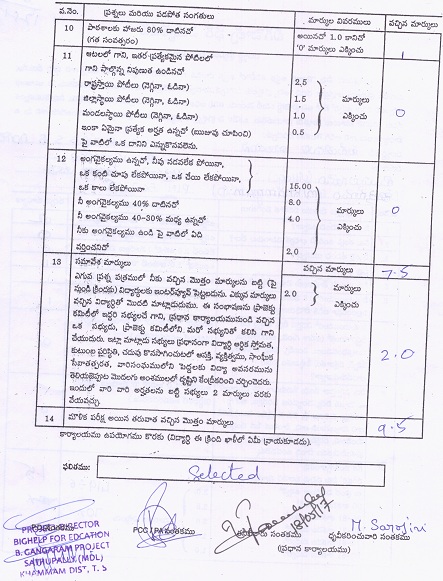 వ.నెం. ప్రశ్నలు మరియు పడపోత సంగతులు మార్కుల వివరములు వచ్చిన మార్కులు
10 పాఠశాలకు హాజరు 80% దాటినచో అయినచో 1.0 కానిచో 1
(గత సంవత్సరం) '0' మార్కులు ఎక్కించు
11 ఆటలలో గాని, ఇతర ప్రత్యేకమైన పోటీలలో
గాని పాల్గొన్న నిపుణుత ఉండినచో
రాష్ట్రస్థాయి పోటీలు (నెగ్గినా, ఓడినా) 2.5
జిల్లాస్థాయి పోటీలు (నెగ్గినా, ఓడినా) 1.5 మార్కులు 0
మండలస్థాయి పోటీలు (నెగ్గినా, ఓడినా) 1.0 ఎక్కించు
ఇంకా ఏమైనా ప్రత్యేక అర్హత ఉన్నచో (ఋజువు చూపించి) 0.5
పై వాటిలో ఒక దానిని ఎన్నుకొనవలెను.
12 అంగవైకల్యము ఉన్నచో, నీవు నడవలేక పోయినా,
ఒక కంటి చూపు లేకపోయినా, ఒక చేయి లేకపోయినా
ఒక కాలు లేకపోయినా 15.00
నీ అంగవైకల్యము 40% దాటినచో 8.0 మార్కులు 0
నీ అంగవైకల్యము 40-30% మధ్య ఉన్నచో 4.0 ఎక్కించు
నీకు అంగవైకల్యము ఉండి పై వాటిలో ఏది
వర్తించనిచో 2.0
13 సమావేశ మార్కులు వచ్చిన మార్కులు 7.5
ఎగువ ప్రశ్న పత్రములో నీకు వచ్చిన మొత్తం మార్కులను బట్టి (పై
నుండి క్రిందకు) విద్యార్థులకు ఇంటర్వ్యూన్ పెట్టబడును. ఎక్కువ మార్కులు 2.0 మార్కులు
వచ్చిన విద్యార్థితో మొదటి మాట్లాడుదుము. ఈ సంభాషణను ప్రాజెక్టు ఎక్కించు
కమిటీలో ఇద్దరి సభ్యులచే గాని, ప్రధాన కార్యాలయమునుండి వచ్చిన
ఒక సభ్యుడు, ప్రాజెక్ట్ కమిటీలోని మరో సభ్యునితో కలిసి గాని
చేయుదురు. ఇట్లా మాట్లాడు సభ్యులు ప్రధానంగా విద్యార్థి ఆర్థిక స్తోమత,
కుటుంబ పరిస్థితి, చదువు కొనసాగించుటలో ఆసక్తి, వ్యక్తిత్వము, సాంఘిక 2.0
సేవాతత్పరత, వారిసంఘములోని పెద్దలకు విద్యా అవసరమును
తెలియజెప్పుట మొదలగు అంశములలో దృష్టిని కేంద్రీకరించి చర్చించెదరు.
ఇందులో వారి వారి అర్హతలను బట్టి సభ్యులు 2 మార్కులు వరకు
వేయువచ్చు
14 మౌలిక పరీక్ష అయిన తరువాత వచ్చిన మొత్తం మార్కులు 9.5
కార్యాలయము ఉపయోగము కొరకు (విద్యార్థి ఈ క్రింది ఖాళీలో ఏమీ వ్రాయకూడదు).
ఫలితము: Selected
18/05/17 M. Sarojini
PROJECT DIRECTOR PCC / PA సంతకము సంతకము ధృవీకరించువారి సంతకము
BIGHELP FOR EDCATION (ప్రధాన కార్యాలయము)
B. GANGARAM PROJECT
SATHUPALLY (MDL)
KHAMMAM DIST, T. S